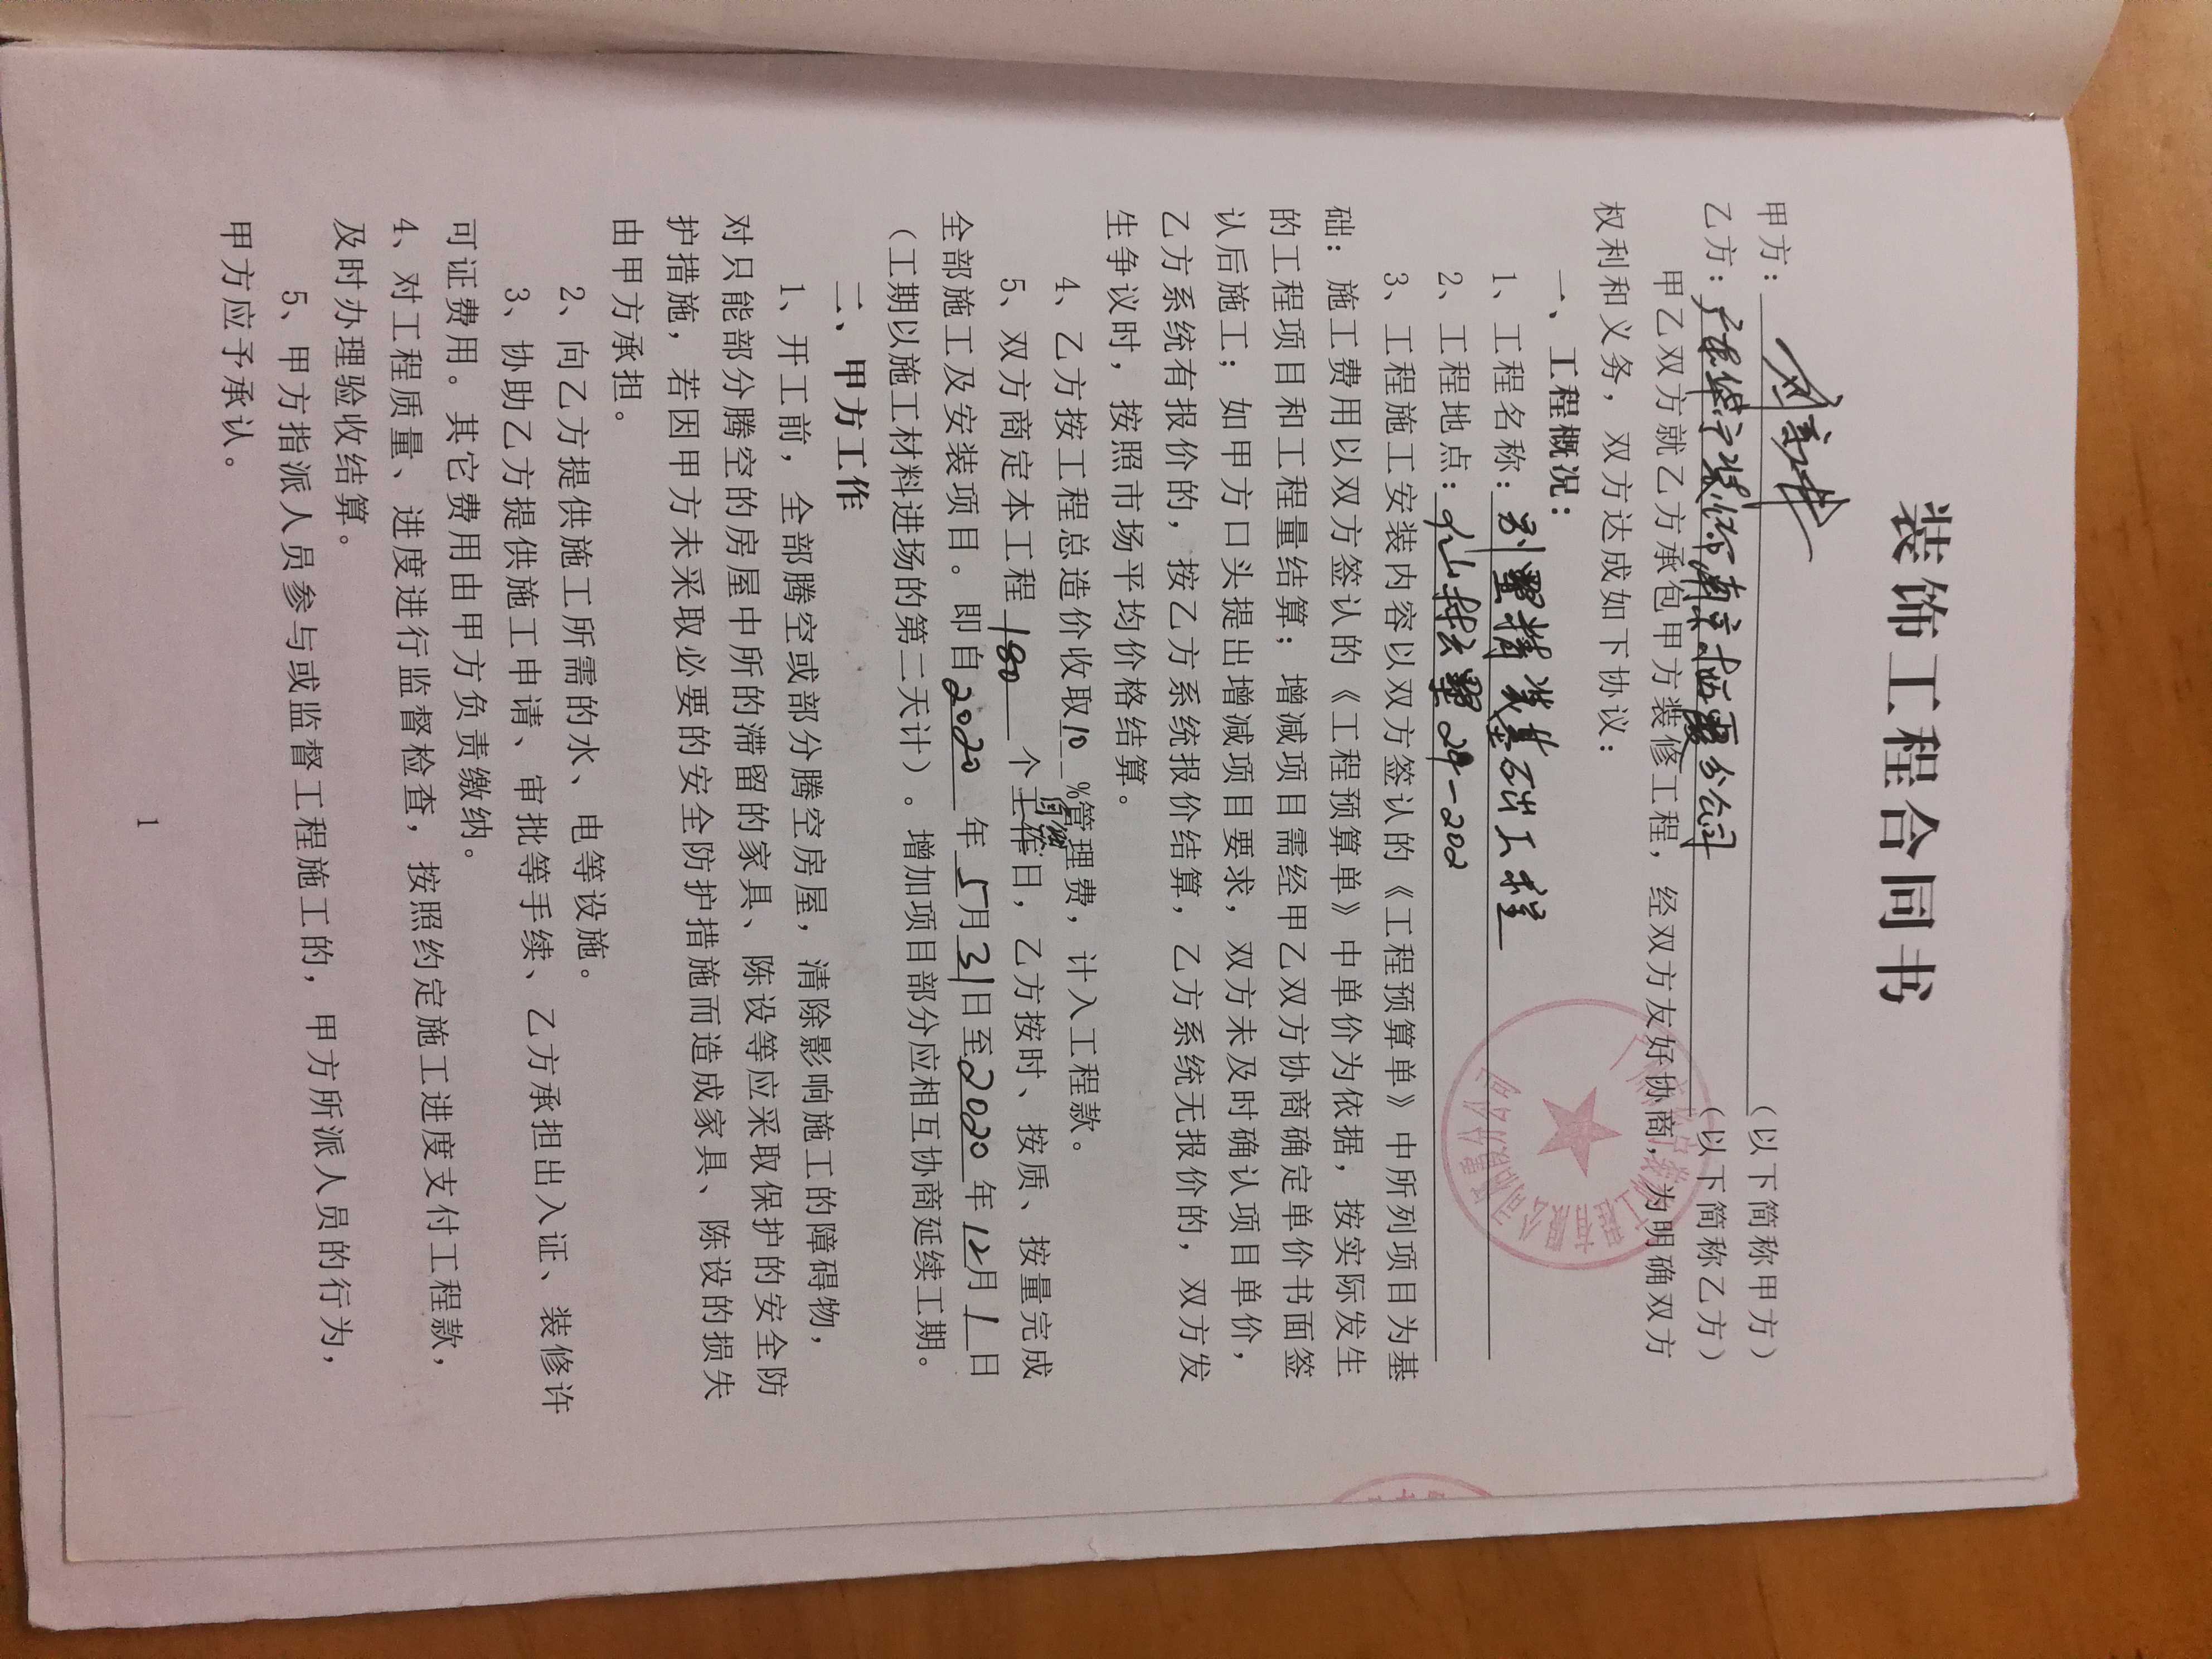 装饰工程合同书
甲方：（以下简称甲方）
乙方：分公司（以下简称乙方）
甲乙双方就乙方承包甲方装修工程，经双方友好协商，为明确双方
权利和义务，双方达成如下协议：
一、工程概况：
1、工程名称：别墅精装基础工程
2、工程地点：墅29-202
3、工程施工安装内容以双方签认的《工程预算单》中所列项目为基
础：施工费用以双方签认的《工程预算单》中单价为依据，按实际发生
的工程项目和工程量结算；增减项目需经甲乙双方协商确定单价书面签
认后施工；如甲方口头提出增减项目要求，双方未及时确认项目单价，
乙方系统有报价的，按乙方系统报价结算，乙方系统无报价的，双方发
生争议时，按照市场平均价格结算。
4、乙方按工程总造价收取10%管理费，计入工程款。
5、双方商定本工程180个工作日，乙方按时、按质、按量完成
全部施工及安装项目。即自2020年5月31日至2020年12月1日
（工期以施工材料进场的第二天计）。增加项目部分应相互协商延续工期。
二、甲方工作
1、开工前，全部腾空或部分腾空房屋，清除影响施工的障碍物，
对只能部分腾空的房屋中所的滞留的家具、陈设等应采取保护的安全防
护措施，若因甲方未采取必要的安全防护措施而造成家具、陈设的损失
由甲方承担。
2、向乙方提供施工所需的水、电等设施。
3、协助乙方提供施工申请、审批等手续、乙方承担出入证、装修许
可证费用。其它费用由甲方负责缴纳。
4、对工程质量、进度进行监督检查，按照约定施工进度支付工程款，
及时办理验收结算。
5、甲方指派人员参与或监督工程施工的，甲方所派人员的行为，
甲方应予承认。
1